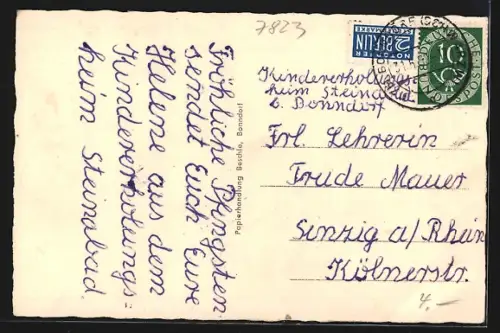 7823
Fröhliche Pfingsten
sendet Euch Eure
Helene aus dem
Kindererholungs=
heim Steinabad.
Papierhandlung Beschle, Bonndorf
NOTOPFER
2 BERLIN
STEUERMARKE
10
Kindererholungs
heim Steina
b. Bonndorf
Frl. Lehrerin
Trude Mauer
Sinzig a/Rhein
Kölnerstr.
4.-